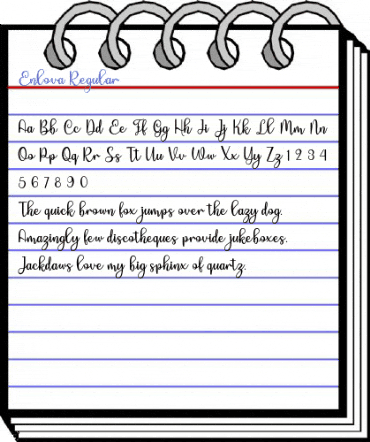 Enlova Regular
Aa Bb Cc Dd Ee Ff Gg Hh Ii Jj Kk Ll Mm Nn
Oo Pp Qq Rr Ss Tt Uu Vv Ww Xx Yy Zz 1 2 3 4
5 6 7 8 9 0
The quick brown fox jumps over the lazy dog.
Amazingly few discotheques provide jukeboxes.
Jackdaws love my big sphinx of quartz.